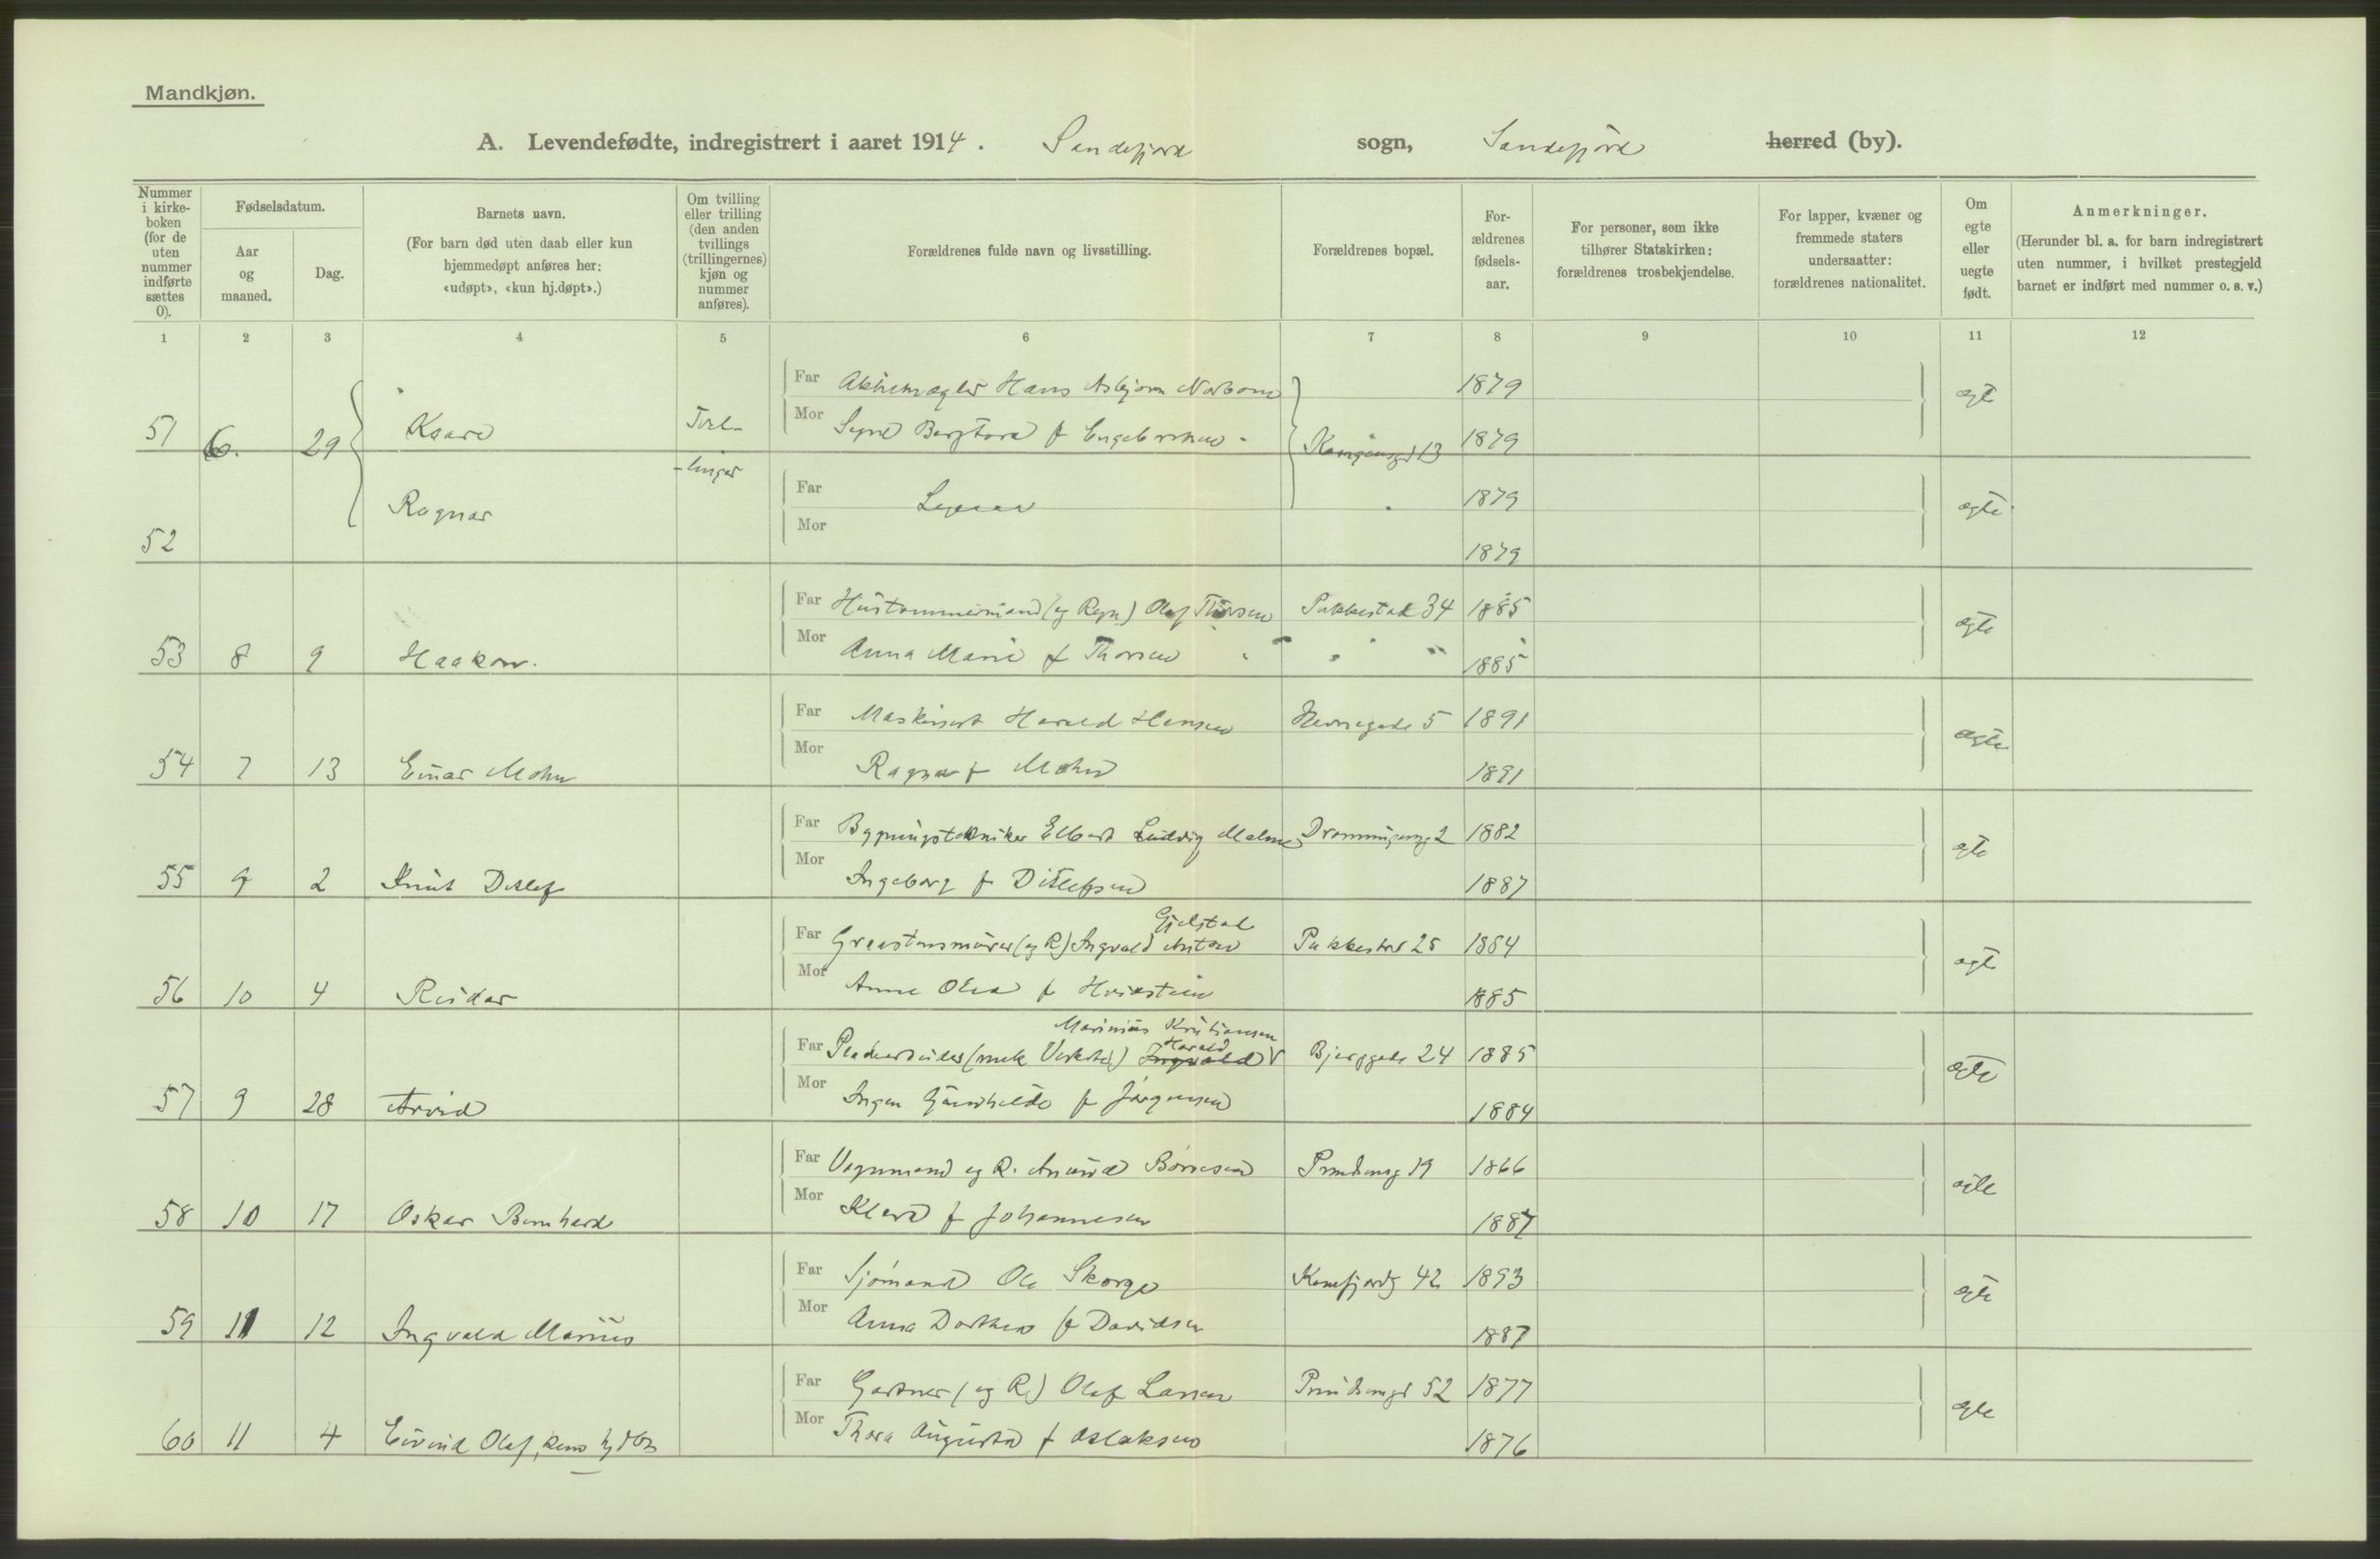 Mandkjøn.
A. Levendefødte, indregistrert i aaret 1914. Sandefjord sogn, Sandefjord herred (by).
Nummer i kirkeboken (for de uten nummer indførte sættes 0).
Fødselsdatum.
Aar og maaned.
Dag.
Barnets navn.
(For barn død uten daab eller kun hjemmedøpt anføres her: «udøpt», «kun hj.døpt».)
Om tvilling eller trilling (den anden tvillings (trillingernes) kjøn og nummer anføres).
Forældrenes fulde navn og livsstilling.
Forældrenes bopæl.
Forældrenes fødselsaar.
For personer, som ikke tilhører Statskirken: forældrenes trosbekjendelse.
For lapper, kvæner og fremmede staters undersaatter: forældrenes nationalitet.
Om egte eller uegte født.
Anmerkninger.
(Herunder bl. a. for barn indregistrert uten nummer, i hvilket prestegjeld barnet er indført med nummer o. s. v.)
1 2 3 4 5 6 7 8 9 10 11 12
Far Hans Asbjørn 1879 egte
51 6. 29 Kaare Mor f Engebretsen Kongensgt 13 1879
Ragnar Far 1879 egte
52 Mor 1879
Far (eg Regn) Olaf Thorsen Pukkestad 34 1885 egte
53 8 9 Haakon. Mor Anna Marie f Thorsen " " " 1885
Far Maskinist Harald Hansen 5 1891 egte
54 7 13 Einar Mohn Mor Ragna f Mohn 1891
Far Bygningstekniker Elbert Ludvig Malm 2 1882 egte
55 9 2 Knut Ditlef Mor Ingeborg f Ditlefsen 1887
Gjelstad
Far (eg R) Ingvald Anton Pukkestad 25 1884 egte
56 10 4 Reidar Mor Anne f 1885
Marinius Kristiansen
Harald
Far (mek Verksted) Ingvald Bjerggate 24 1885 egte
57 9 28 Arvid Mor Gunhilde f Jørgensen 1884
Far Vognmand eg R. 19 1866 egte
58 10 17 Oskar Bernhard Mor Klara f Johannesen 1887
Far Sjømand Ole Skorge 42 1893 egte
59 11 12 Ingvald Marius Mor Anna Dorthea f Davidsen 1887
Far Gartner (eg R) Olaf Larsen 52 1877 egte
60 11 4 Eivind Olaf, Mor Thora Augusta f Aslaksen 1876